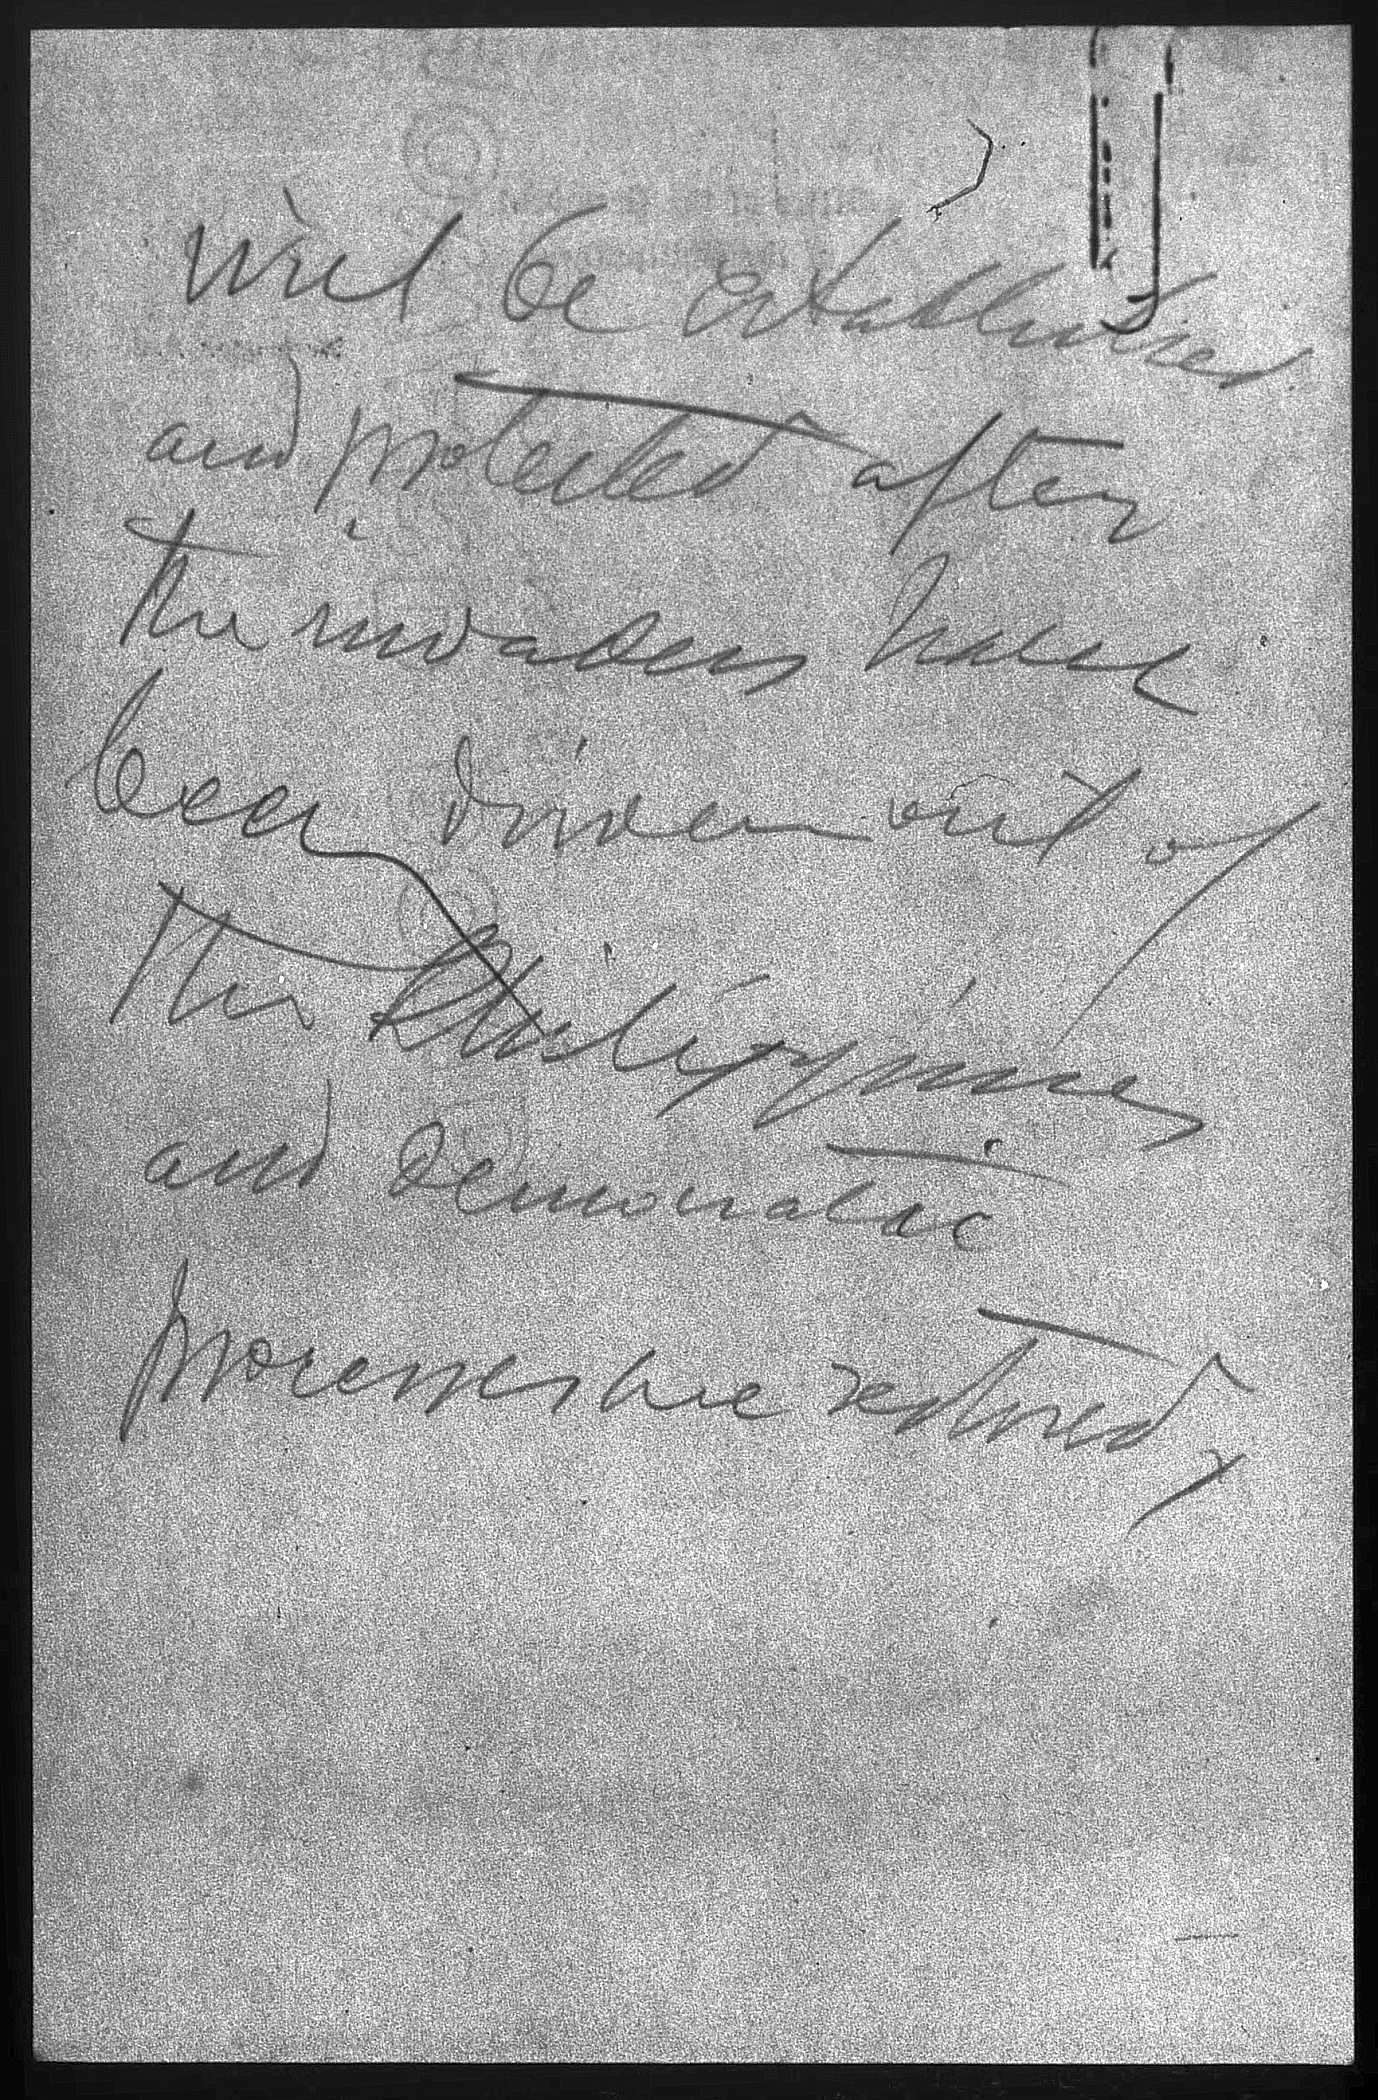 will be established
and protected after
the invaders have
been driven out of
the Philippines
and democratic
processes are restored,